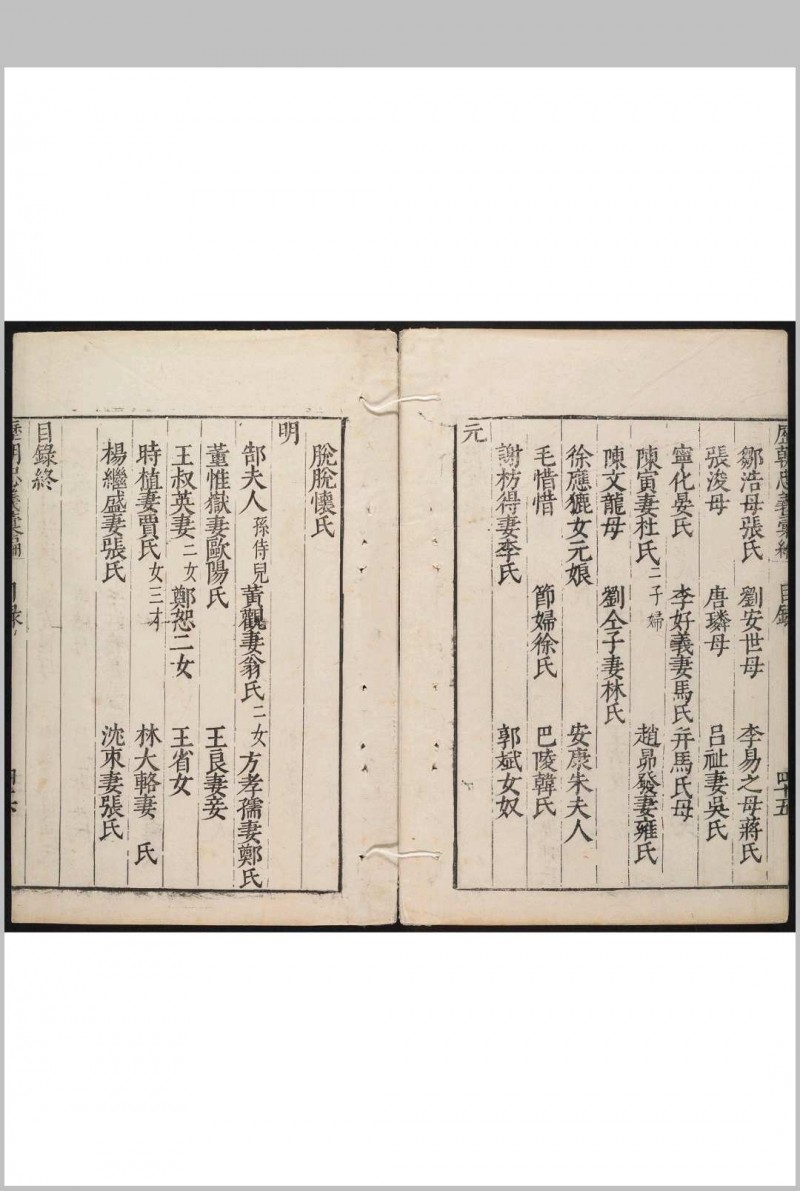 歷朝忠義彙編 目錄 四十五
鄒浩母張氏 劉安世母 李易之母蔣氏
張浚母 唐璘母 呂祉妻吳氏
寧化晏氏 李好義妻馬氏 幷馬氏母
陳寅妻杜氏二子婦 趙昴發妻雍氏
陳文龍母 劉仝子妻林氏
徐應鑣女元娘 安康朱夫人
毛惜惜 節婦徐氏 巴陵韓氏
謝枋得妻李氏 郭斌女奴
元
脫脫懷氏
明
郜夫人孫侍兒 黃觀妻翁氏二女 方孝孺妻鄭氏
董惟嶽妻歐陽氏 王良妻妾
王叔英妻二女 鄭恕二女 王省女
時植妻賈氏女三才 林大輅妻 氏
楊繼盛妻張氏 沈束妻張氏
目錄終
歷朝忠義彙編 目錄